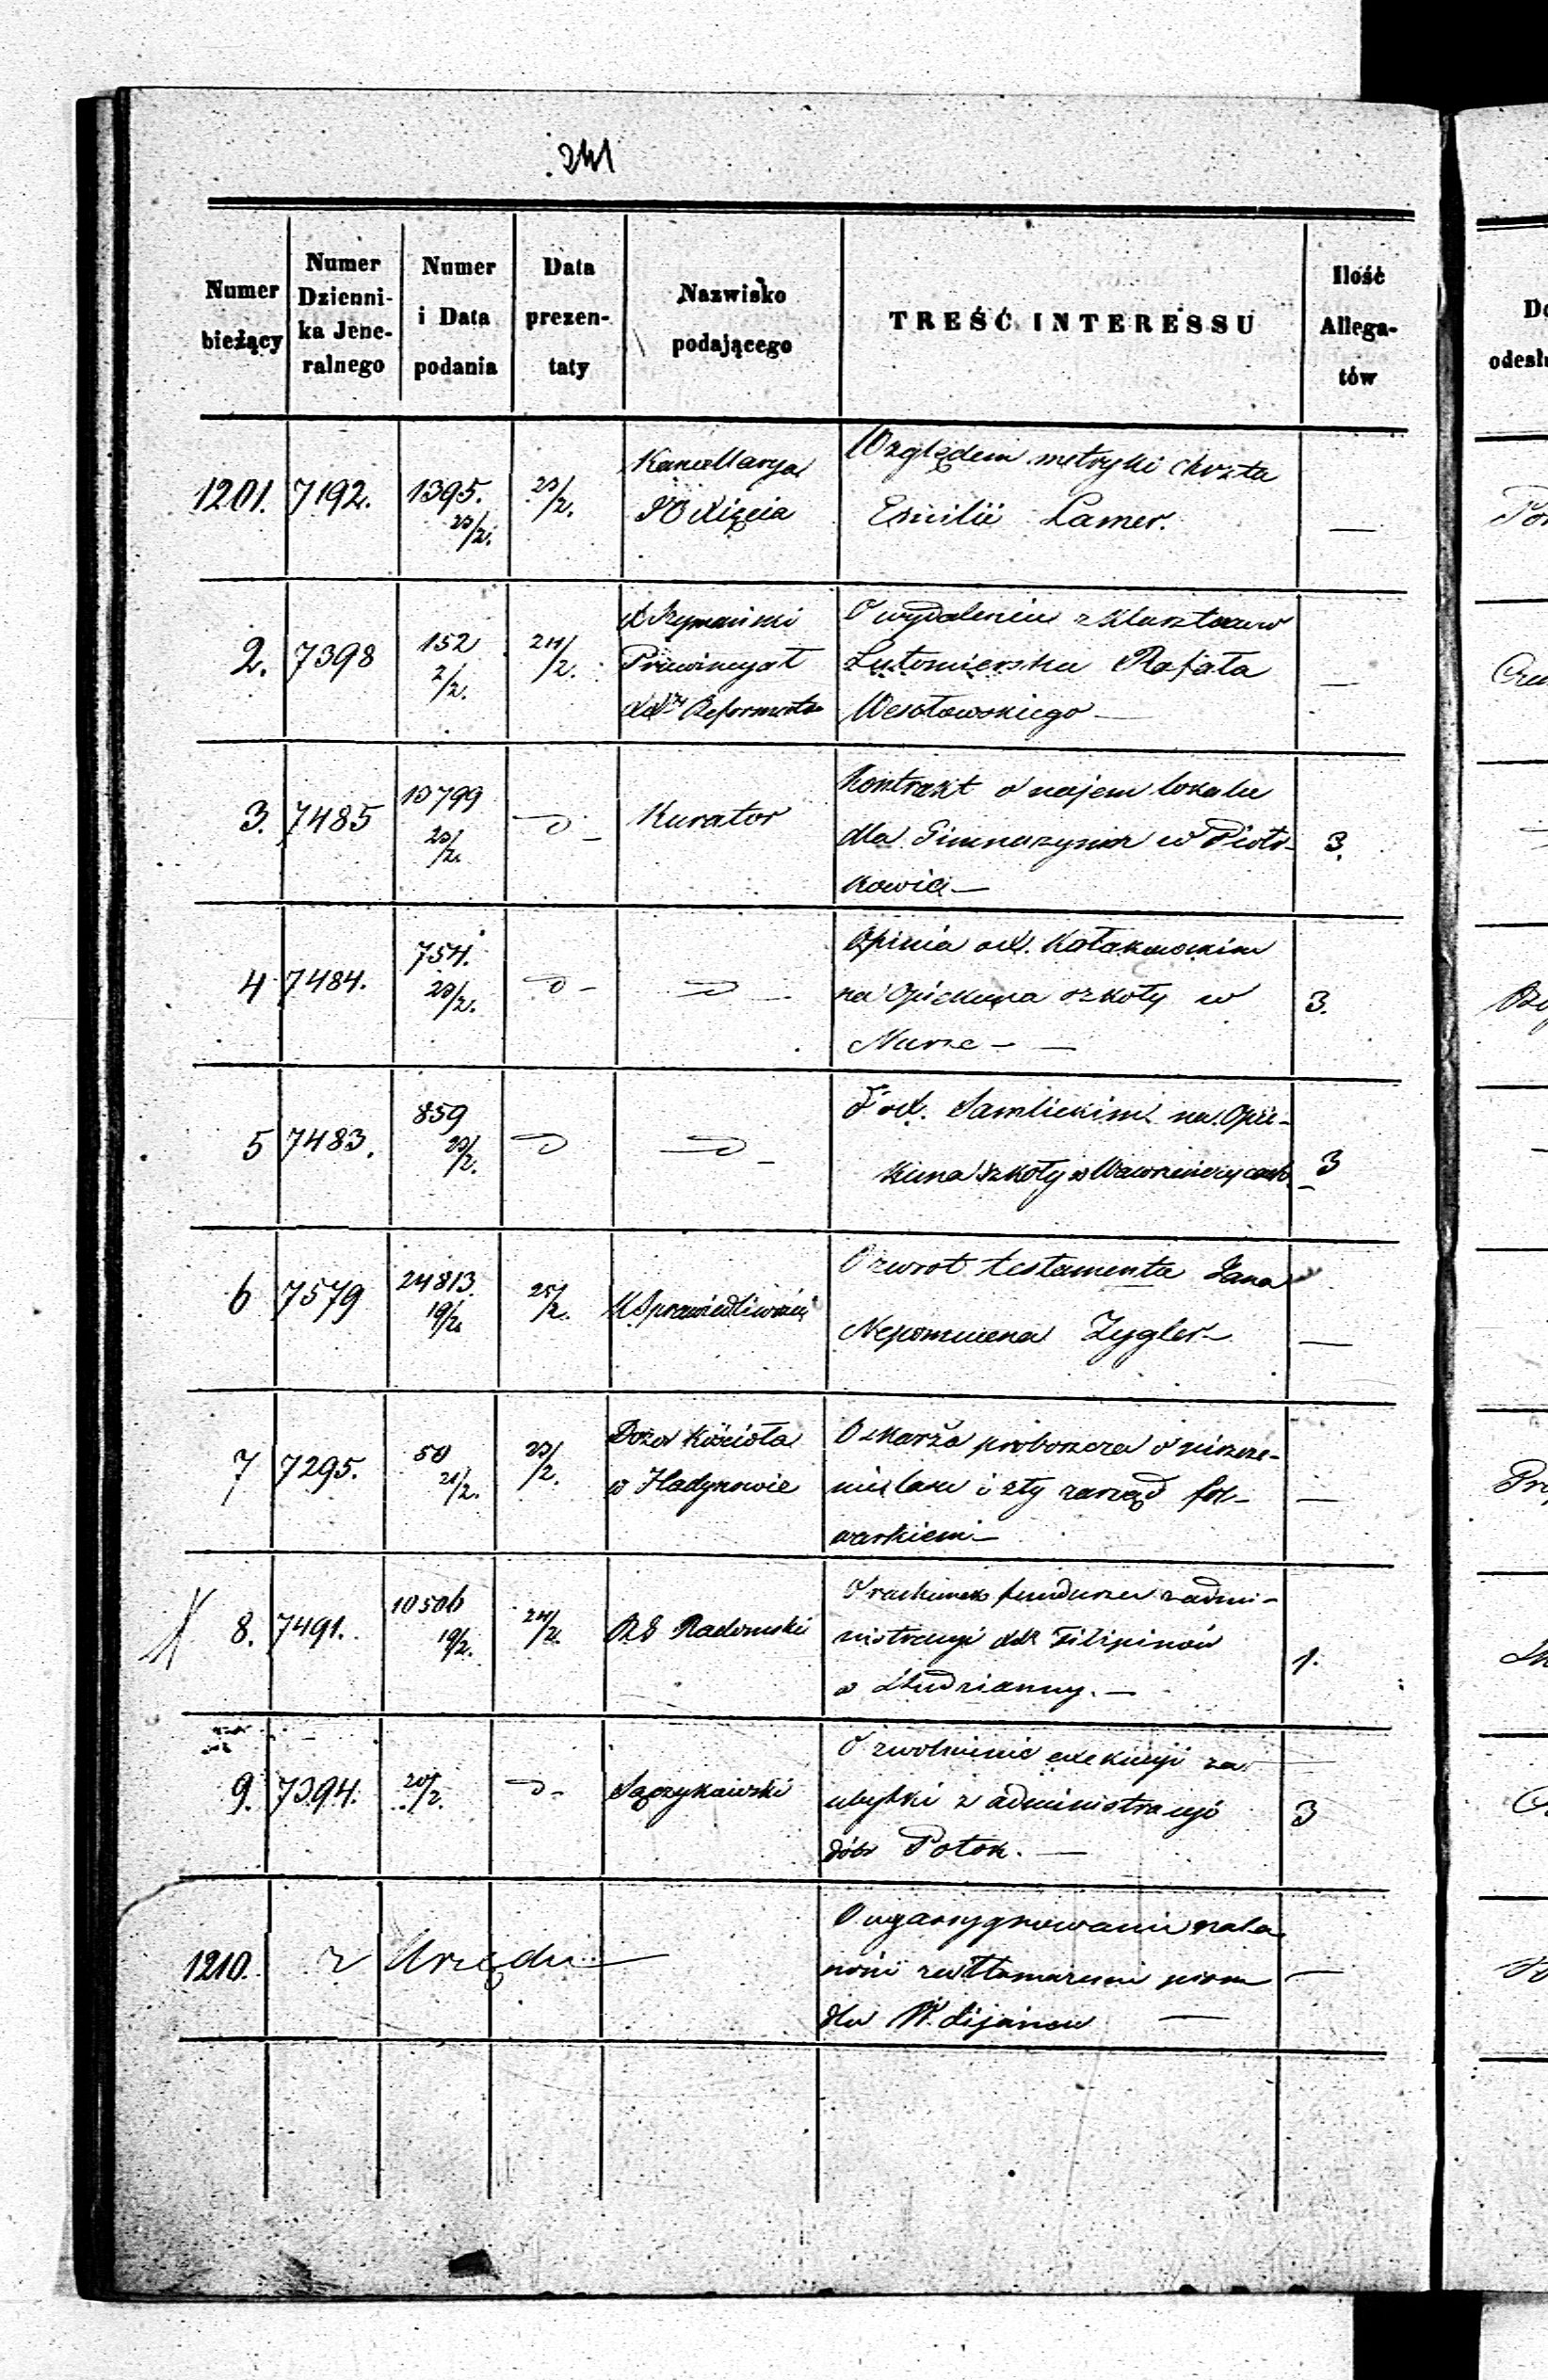 241
Numer bieżący | Numer Dzienni-ka Jene-ralnego | Numer i Data podania | Data prezen-taty | Nazwisko podającego | TREŚĆ INTERESSU | Ilość Allega-tów
1201. 7192. 1395. 23/2. 23/2. Kancellarya JO Xięcia
Względem metryki chrztu
Emilii Lamer. —
2. 7398 152 2/2. 24/2. X Szymański Prowincyał XX Reformatów
O wydaleniu z Klasztoru w
Lutomiersku Rafała
Wesołowskiego — —
3. 7485 13799 23/2. D - Kurator
Kontrakt o najem lokalu
dla Gimnazyum w Piotr-
kowie — 3.
4 7484. 754. 23/2. D - D -
Opinia o X. Kołakowskim
na Opiekuna szkoły w
Nurze — 3.
5 7483. 859 23/2. D D -
D o X. Samlickim na Opie-
kuna szkoły w Wawrzeńczycach 3
6 7579 24813. 19/2. 25/2. K Sprawiedliwości
O zwrot testamentu Jana
Nepomucena Zygler — —
7 7295. 50 21/2. 23/2. Dozór Kościoła w Hadynowie
Oskarża proboszcza o niszcze-
nie lasu i zły zarząd fol-
warkiem — —
8. 7491. 10506 19/2. 24/2. RG Radomski
O rachunek funduszu z admi-
nistracyi XX Filipinów
w Studzianny. — 1.
9. 7394. 20/2. D -
O zwolnienie exekucyi za
ubytki z administracyi
dóbr Potok. — 3
1210. z Urzędu —
O wyassygnowaniu nale
ności za tłomaczenie pism
dla —